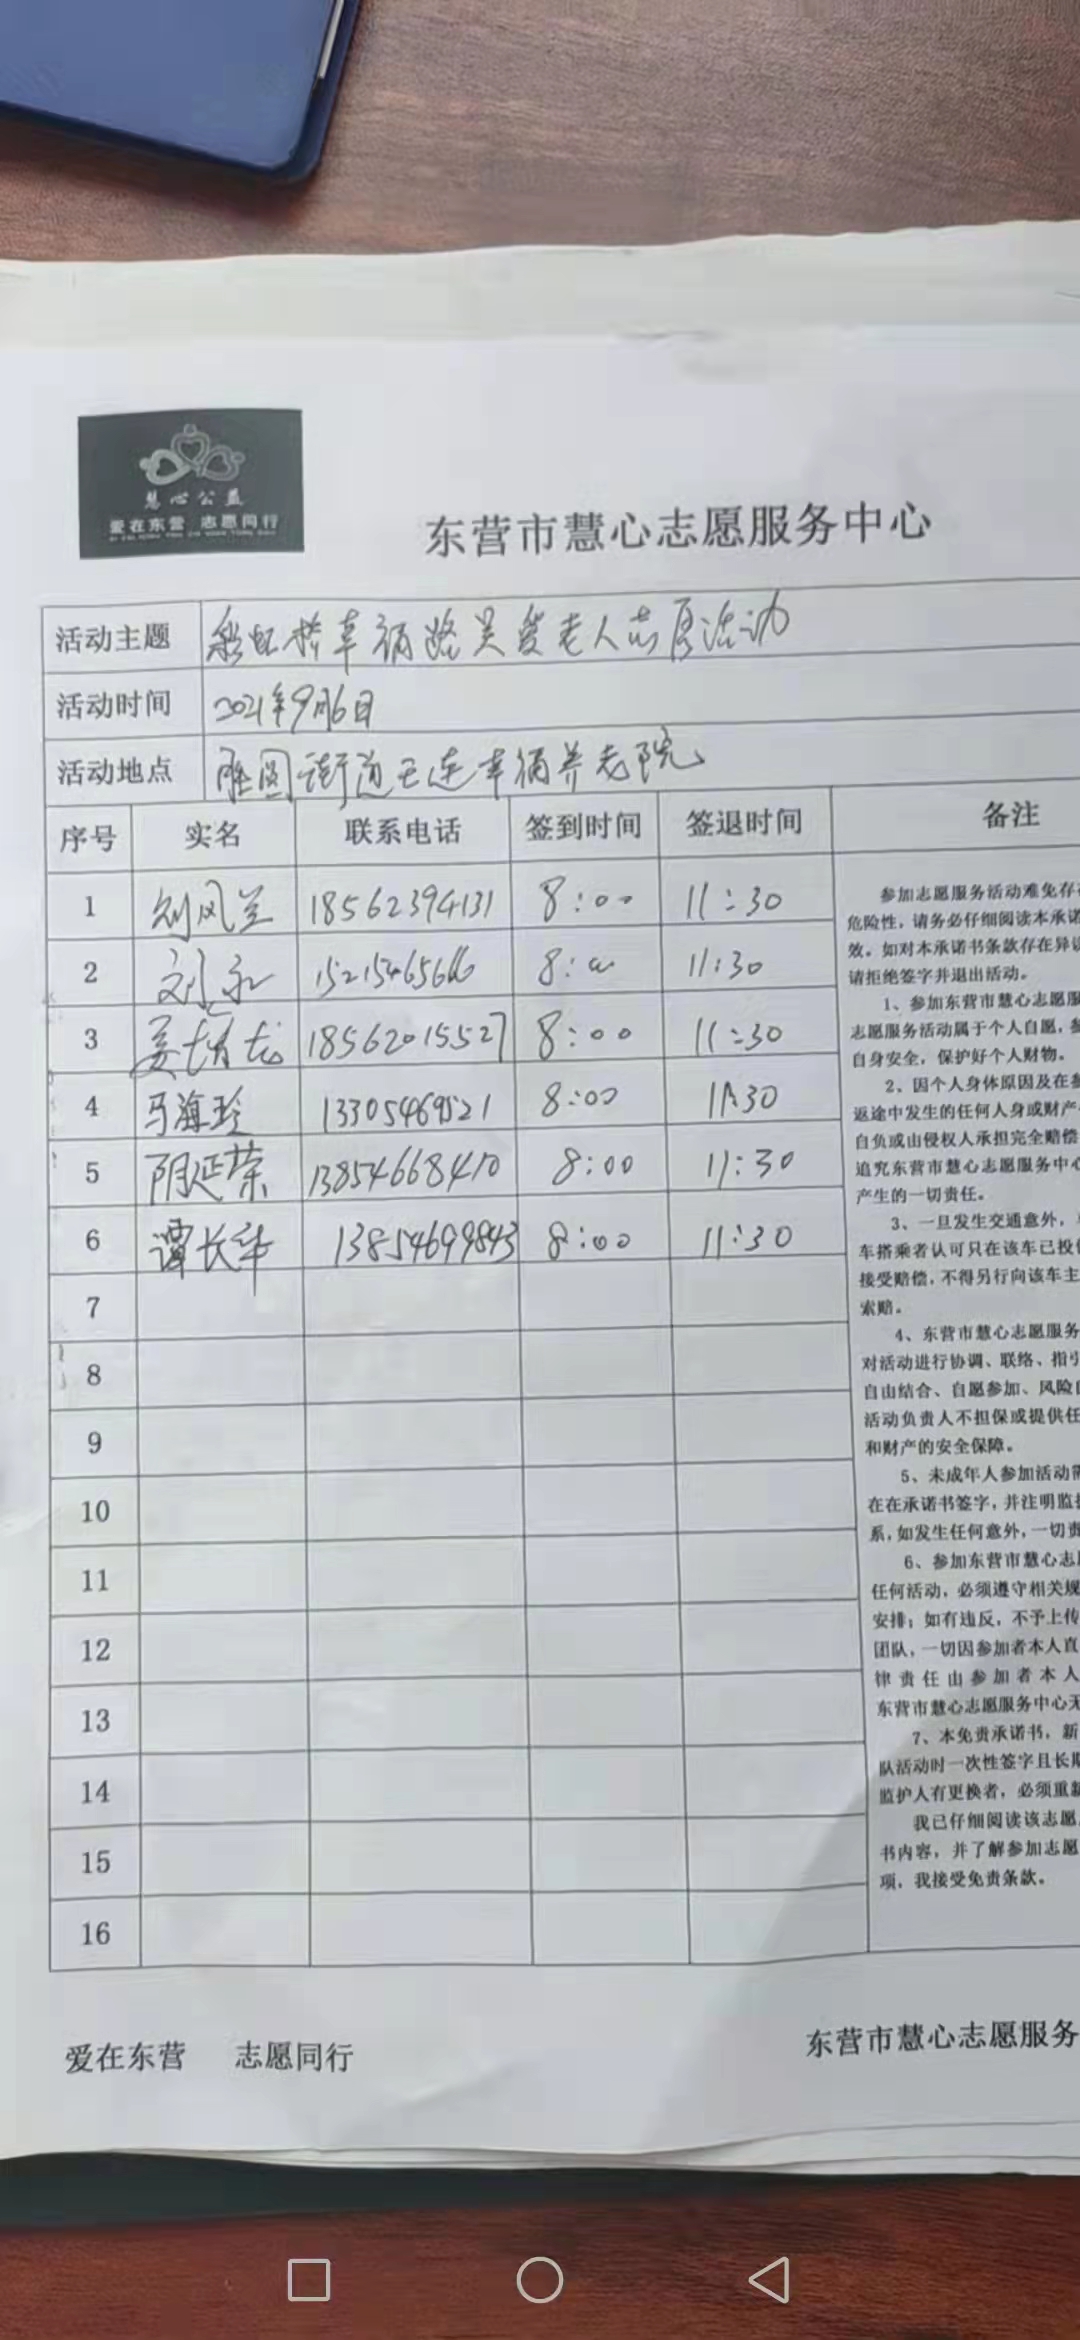 慧心公益
爱在东营 志愿同行
东营市慧心志愿服务中心
活动主题 彩虹桥幸福路关爱老人志愿活动
活动时间 2021年9月6日
活动地点 街道 幸福养老院
序号 实名 联系电话 签到时间 签退时间 备注
1 刘风兰 18562394131 8:00 11:30
2 刘永 8:00 11:30
3 姜 18562015527 8:00 11:30
4 马海珍 13305469521 8:00 11:30
5 阴延荣 13854668410 8:00 11:30
6 谭长华 13854699843 8:00 11:30
7
8
9
10
11
12
13
14
15
16
参加志愿服务活动难免存在
危险性，请务必仔细阅读本承诺
效。如对本承诺书条款存在异议
请拒绝签字并退出活动。
1、参加东营市慧心志愿服
志愿服务活动属于个人自愿，参
自身安全，保护好个人财物。
2、因个人身体原因及在参
返途中发生的任何人身或财产
自负或由侵权人承担完全赔偿
追究东营市慧心志愿服务中心
产生的一切责任。
3、一旦发生交通意外，
车搭乘者认可只在该车已投
接受赔偿，不得另行向该车主
索赔。
4、东营市慧心志愿服务
对活动进行协调、联络、指引
自由结合、自愿参加、风险
活动负责人不担保或提供任
和财产的安全保障。
5、未成年人参加活动需
在在承诺书签字，并注明监护
系，如发生任何意外，一切责
6、参加东营市慧心志愿
任何活动，必须遵守相关规
安排；如有违反，不予上传
团队，一切因参加者本人直
律责任由参加者本人
东营市慧心志愿服务中心无
7、本免责承诺书，新
队活动时一次性签字且长期
监护人有更换者，必须重新
我已仔细阅读该志愿
书内容，并了解参加志愿
项，我接受免责条款。
爱在东营 志愿同行
东营市慧心志愿服务